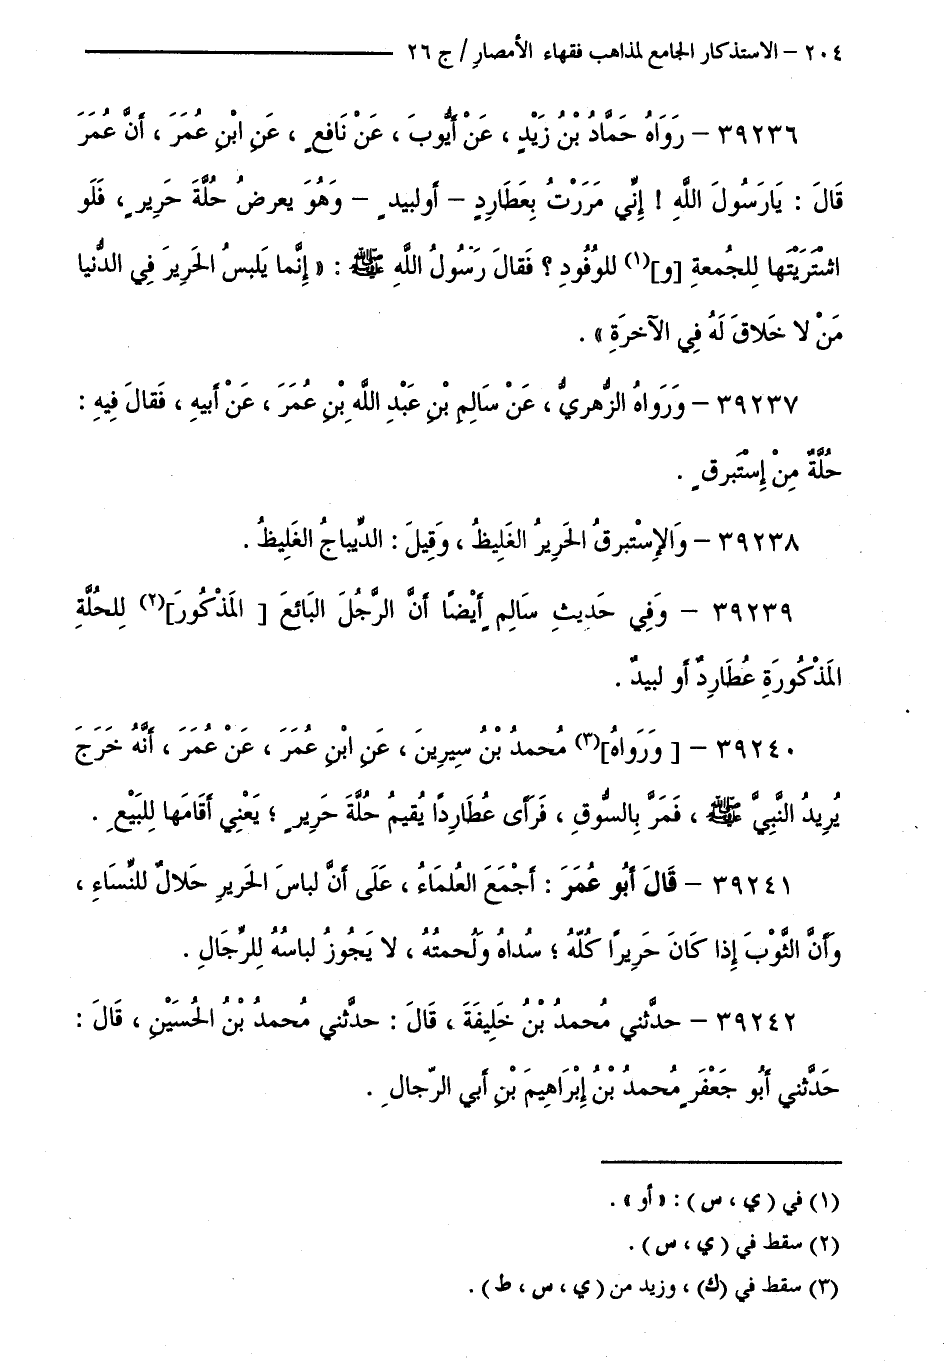 ٢٠٤ – الاستذكار الجامع لمذاهب فقهاء الأمصارِ / ج ٢٦
٣٩٢٣٦ – رَوَاهُ حَمَّادُ بْنُ زَيْدٍ ، عَنْ أَيُّوبَ ، عَنْ نَافعٍ ، عَنِ ابْنِ عُمَرَ ، أَنَّ عُمَرَ
قَالَ : يَارَسُولَ اللَّهِ ! إِنِّي مَرَرْتُ بِعَطَارِدٍ – أولبيدٍ – وَهُوَ يعرضُ حُلَّةَ حَريرٍ ، فَلَو
اشْتَرَيْتَها لِلجُمعةِ [و](١) للوُفُودِ ؟ فَقالَ رَسُولُ اللَّهِ ﷺ : « إِنَّما يَلبسُ الحَريرَ فِي الدُّنيا
مَنْ لا خَلاقَ لَهُ فِي الآخرَةِ » .
٣٩٢٣٧ – وَرَواهُ الزُّهريُّ ، عَنْ سَالِمِ بْنِ عَبْدِ اللَّهِ بْنِ عُمَرَ ، عَنْ أبيهِ ، فَقالَ فِيهِ :
حُلَّةٌ مِنْ إِسْتَبرقٍ .
٣٩٢٣٨ – وَالإِسْتبرقُ الحَريرُ الغَليظُ ، وَقِيلَ : الدِّيباجُ الغَلِيظُ .
٣٩٢٣٩ – وَفِي حَديثِ سَالِمٍ أَيْضًا أَنَّ الرَّجُلَ البَائعَ [ المَذْكُورَ](٢) لِلحُلَّةِ
المَذْكُورَةِ عُطَارِدٌ أو لبيدٌ .
٣٩٢٤٠ – [ وَرَواهُ](٣) مُحمدُ بْنُ سِيرِينَ ، عَنِ ابْنِ عُمَرَ ، عَنْ عُمَرَ ، أَنَّهُ خَرَجَ
يُرِيدُ النَّبِيَّ ﷺ ، فَمَرَّ بِالسُّوقِ ، فَرَأى عُطَارِدًا يُقيمُ حُلَّةَ حَريرٍ ؛ يَعْنِي أقَامَها لِلبَيْعِ .
٣٩٢٤١ – قَالَ أَبُو عُمَرَ : أَجْمَعَ العُلمَاءُ ، عَلَى أنَّ لباسَ الحَريرِ حَلالٌ للنِّسَاءِ ،
وَأَنَّ الثَّوْبَ إِذا كَانَ حَريرًا كُلّهُ ؛ سُداهُ وَلُحمتُهُ ، لا يَجُوزُ لباسُهُ لِلرِّجَالِ .
٣٩٢٤٢ – حدثَّني مُحمدُ بْنُ خَلِيفَةَ ، قَالَ : حدثَّني مُحمدُ بْنُ الحُسَيْنِ ، قَالَ :
حَدَّثَني أبُو جَعْفَرٍ مُحمدُ بْنُ إِبْرَاهِيمَ بْنِ أَبي الرِّجالِ .
(١) في ( ي ، س ) : « أو » .
(٢) سقط في ( ي ، س ) .
(٣) سقط في (ك) ، وزيد من ( ي ، س ، ط ) .